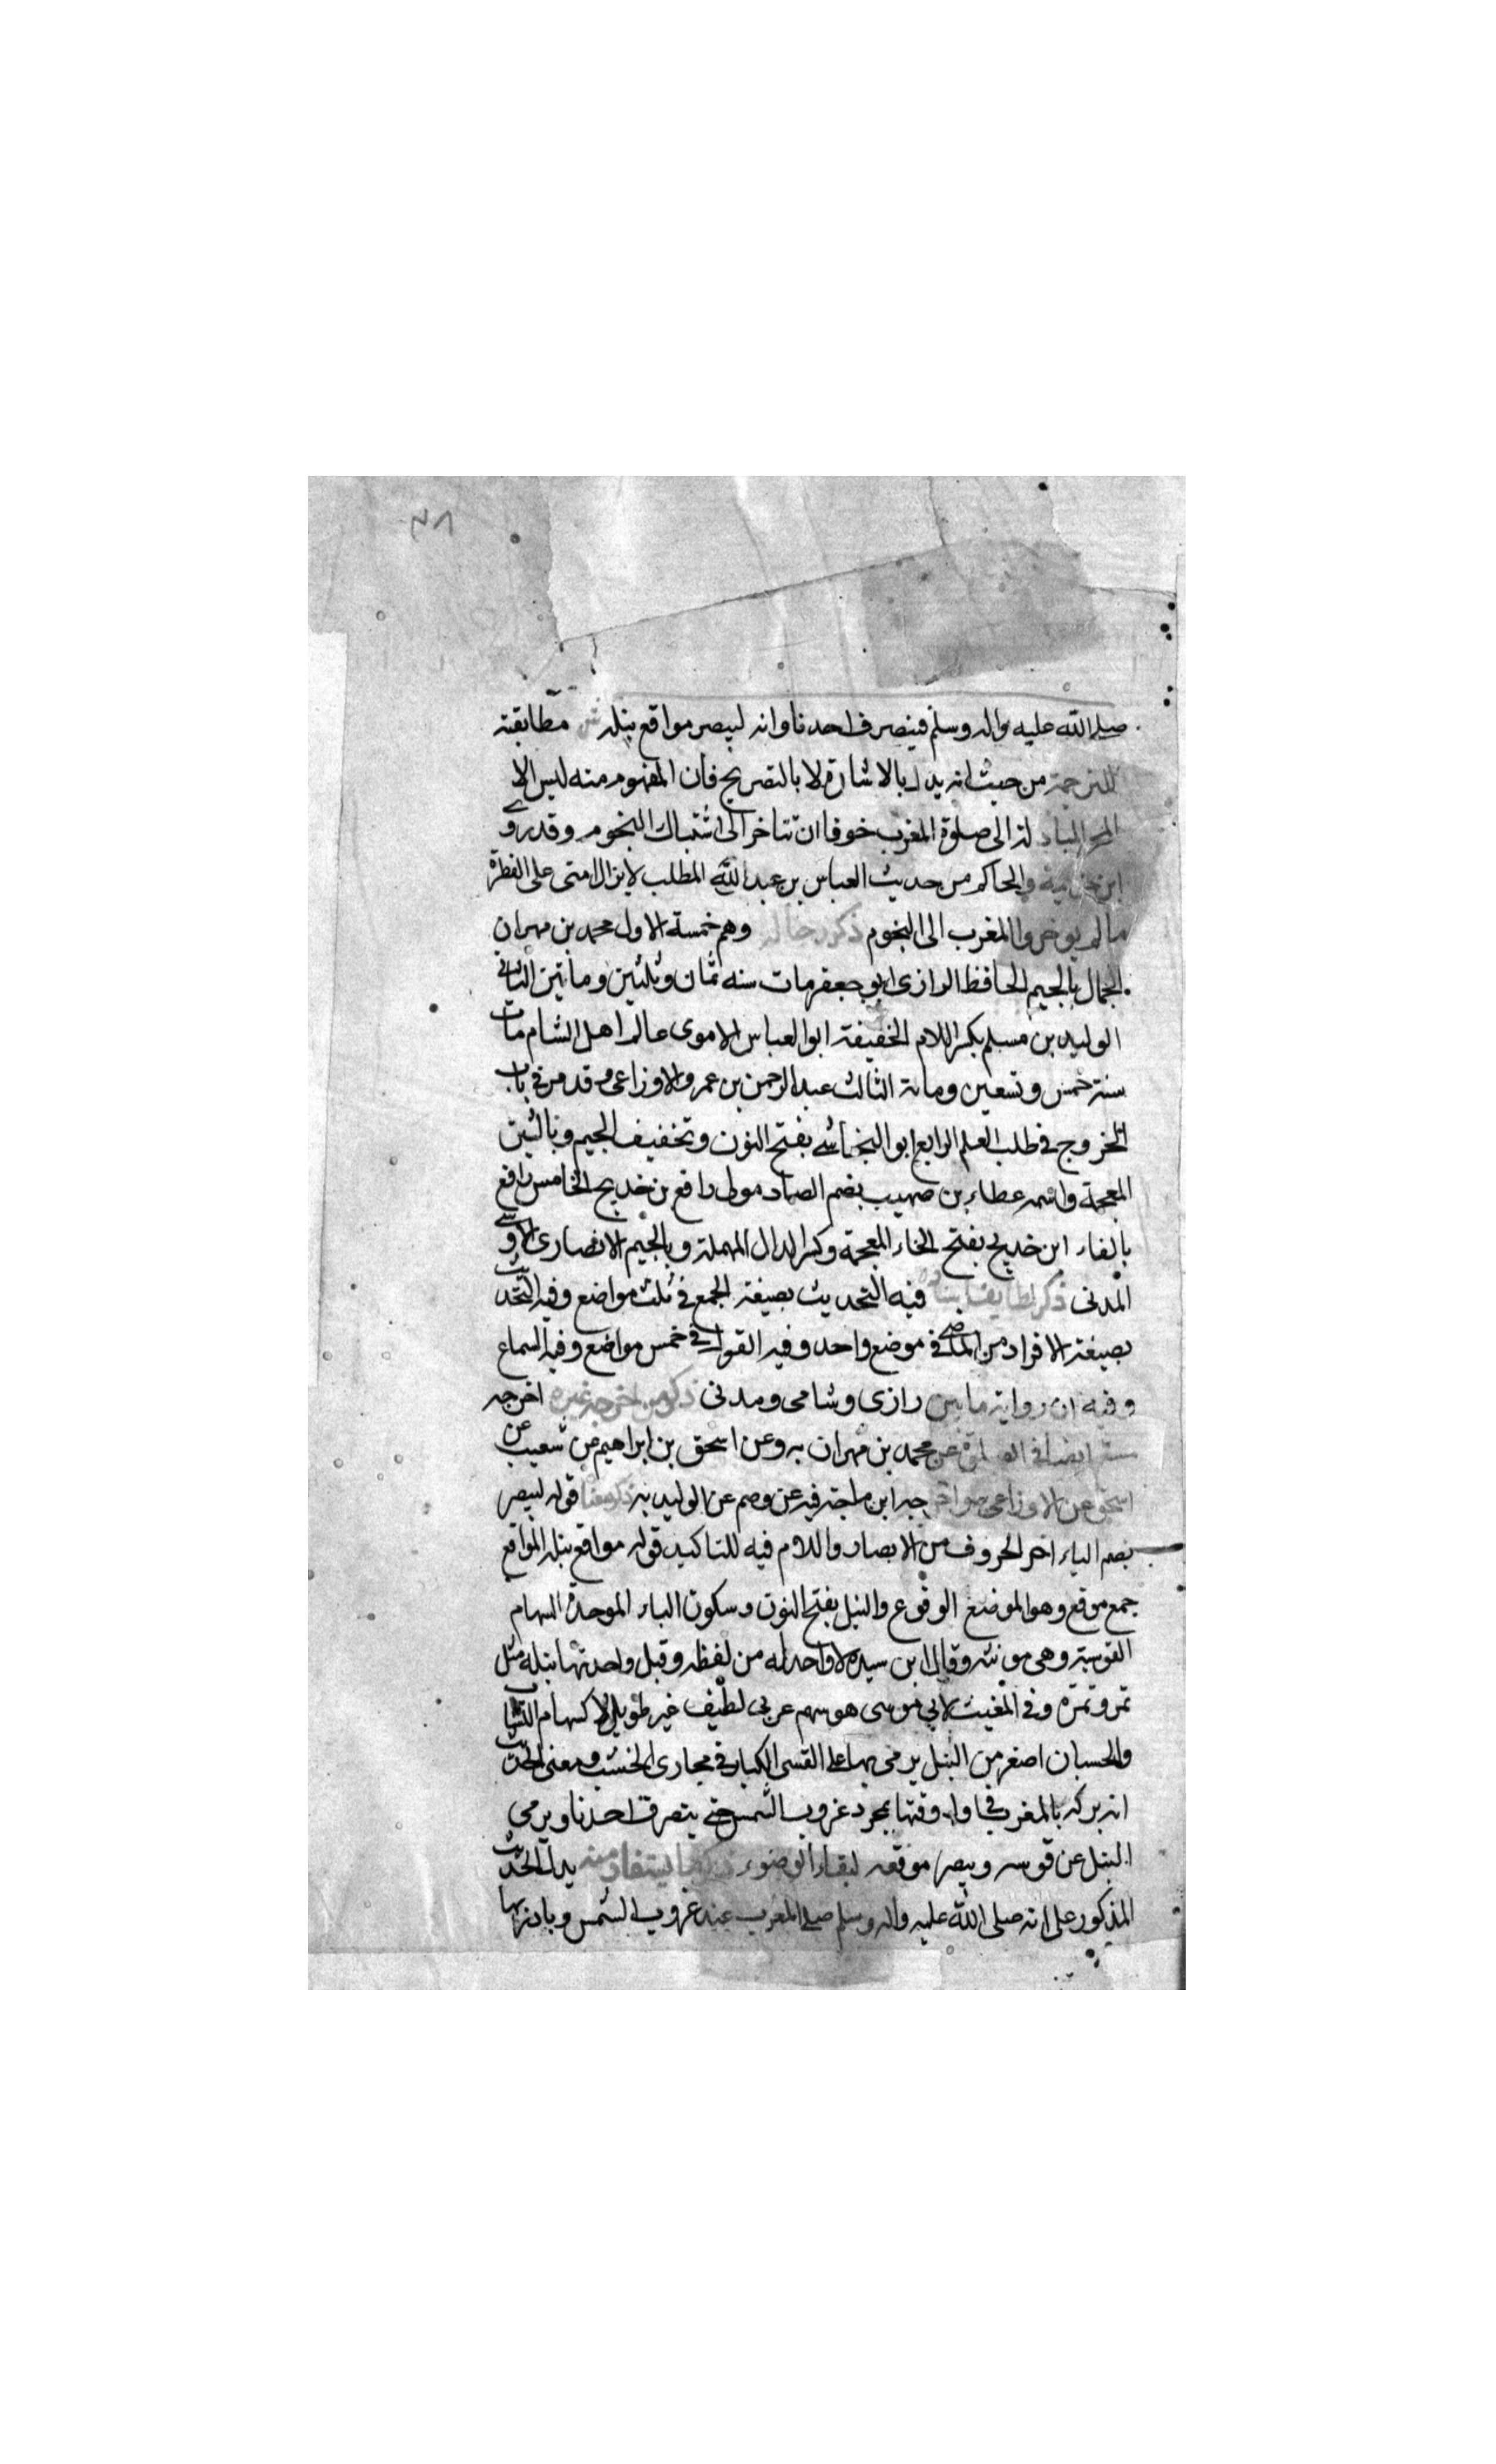 ٣٨
صلى الله عليه واله وسلم فينصرف احدنا وانه ليبصر مواقع نبله ش مطابقته
للترجمة من حيث انه يدل بالاشارة لا بالتصريح فان المفهوم منه ليس الا
المبادرة الى صلوة المغرب خوفا ان تتاخر الى اشتباك النجوم وقد روى
ابن خزيمة والحاكم من حديث العباس بن عبد الله المطلب لا يزال امتى على الفطرة
ما لم يوخروا المغرب الى النجوم ذكر رجاله وهم خمسة الاول محمد بن مهران
الجمال بالجيم الحافظ الرازى ابو جعفر مات سنه ثمان وثلثين ومأتين الثانى
الوليد بن مسلم بكسر اللام الخفيفة ابو العباس الاموى عالم اهل الشام مات
سنة خمس وتسعين ومائة الثالث عبد الرحمن بن عمرو الاوزاعى وقد مر فى باب
الخروج فى طلب العلم الرابع ابو النجاشى بفتح النون وتخفيف الجيم وبالشين
المعجمة واسمه عطاء بن صهيب بضم الصاد مولى رافع بن خديج الخامس رافع
بالفاء ابن خديج بفتح الخاء المعجمة وكسر الدال المهملة وبالجيم الانصارى الاوسى
المدنى ذكر لطايف اسناده فيه التحديث بصيغة الجمع فى ثلث مواضع وفيه التحديث
بصيغة الافراد من الماضى فى موضع واحد وفيه القول فى خمس مواضع وفيه السماع
وفيه ان رواية ما بين رازى وشامى ومدنى ذكر من اخرجه غيره اخرجه
مسلم ايضا فى الصلوة عن محمد بن مهران به وعن اسحق بن ابراهيم عن شعيب بن
اسحق عن الاوزاعى به واخرجه ابن ماجة فيه عن وحيم عن الوليد به ذكر معناه قوله ليبصر
بضم الياء اخر الحروف من الابصار واللام فيه للتاكيد قوله مواقع نبله المواقع
جمع موقع وهو الموضع الوقوع والنبل بفتح النون وسكون الباء الموحدة السهام
القوسية وهى مونثه وقال ابن سيده لا واحد له من لفظه وقيل واحدتها نبله مثل
تمر وتمرة وفى المغيث لابى موسى هو سهم عربى لطيف غير طويل لا كسهام النشاب
والحسبان اصغر من النبل يرمى بها على القسى الكبار فى مجارى الخشب ومعنى الحديث
انه بكر بالمغرب فى اول وقتها بمجرد غروب الشمس حتى ينصرف احدنا ويرمى
النبل عن قوسه ويبصر موقعه لبقاء الضوء ذكر ما يستفاد منه يدل الحديث
المذكور على انه صلى الله عليه واله وسلم صلى المغرب عند غروب الشمس وبادر بها